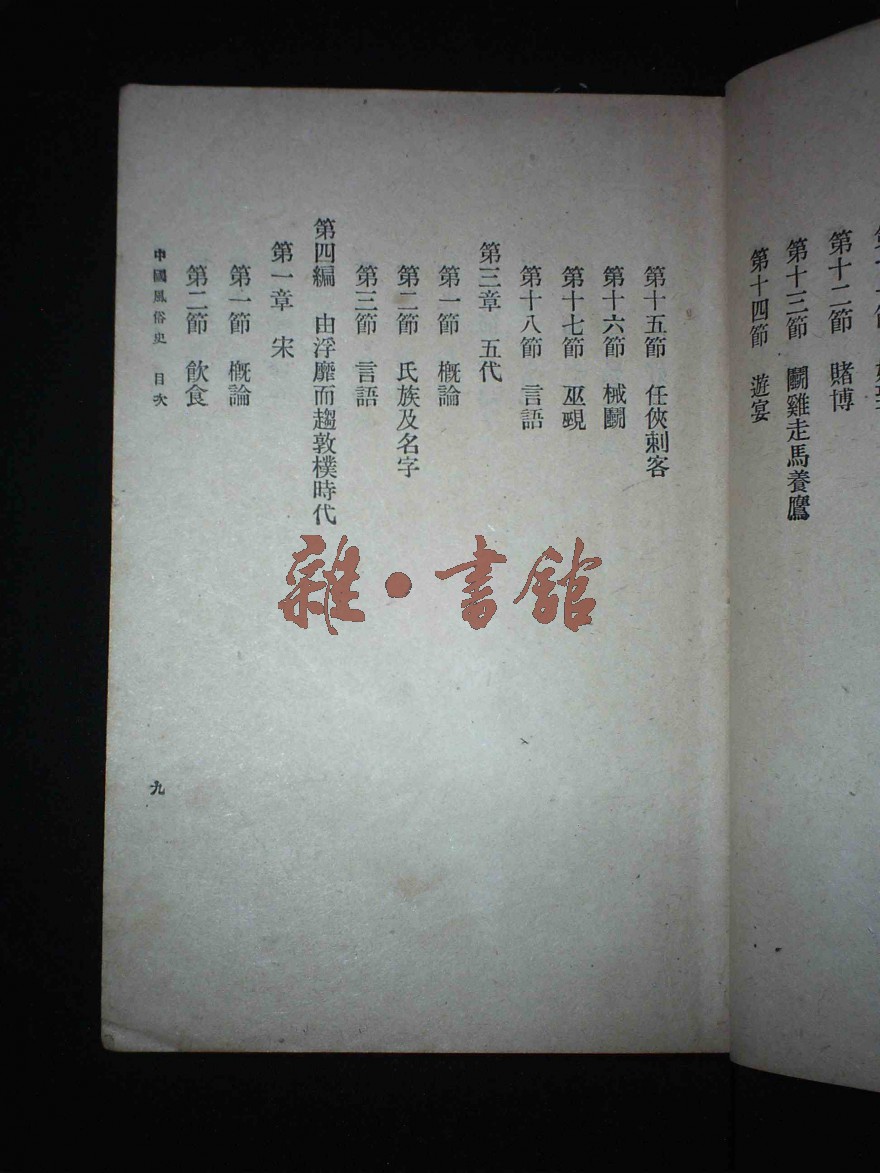 第十二節　賭博
第十三節　鬭雞走馬養鷹
第十四節　遊宴
第十五節　任俠刺客
第十六節　械鬭
第十七節　巫覡
第十八節　言語
第三章　五代
第一節　概論
第二節　氏族及名字
第三節　言語
第四編　由浮靡而趨敦樸時代
第一章　宋
第一節　概論
第二節　飲食
中國風俗史　目次
九
雜·書館